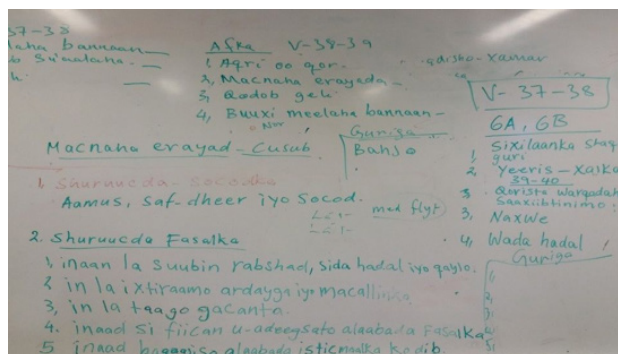 37-38
bannaan
Afka V-38-39
1, Aqri oo qor.
2, Macnaha erayada -
3, Qodob geli.
4, Buuxi meelaha bannaan -
xamar
V- 37-38
6A, 6B
1, Sixilaanka
guri
2, Yeeris -
39-40
3 Qoristo warqadah
Saaxiibtinimo:
3, Naxwe
4, Wada hadal
Guriga
Guriga
Bahso
Macnaha erayad - Cusub
1, Shuruucda - Socodka
Aamus, Saf-dheer iyo Socod.
med flyt
2. Shuruucda Fasalka
1, inaan la Suubin rabshad, sida hadal iyo qaylo.
2 in la ixtiraamo ardayga iyo macallinka
3, in la taago gacanta.
4. inaad si fiican u-adeegsato alaabada Fasalka
5 inaad alaabada isticmaalka kadib.